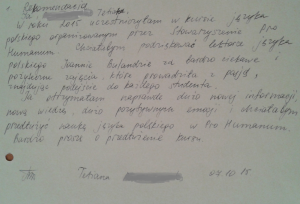 Rekomendacja
Ja
W roku 2015 uczestniczyłam w kursie języka
polskiego organizowanym przez Stowarzyszenie Pro
Humanum. Chciałabym podziękować lektorce języka
polskiego Joannie za bardzo ciekawe i
pożyteczne zajęcia, które prowadziła z pasją,
znajdując podejście do każdego studenta.
Ja otrzymałam naprawdę dużo nowej informacji,
nową wiedzę, dużo pozytywnych emocji i chciałabym
naukę języka polskiego w Pro Humanum.
Bardzo proszę o przedłużenie kursu.
Tatiana 04.10.15